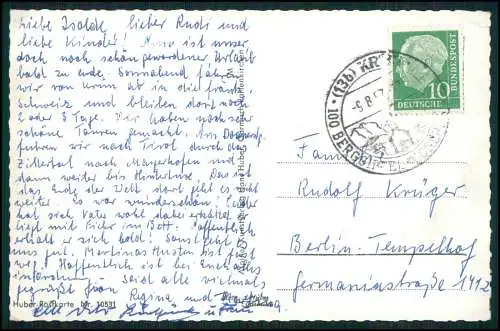 Liebe Isolde, lieber Rudi und
liebe Kinder! Nun ist unser
doch noch schön gewordener Urlaub
bald zu Ende. Sonnabend fahren
wir von hier ab in die fränk.
Schweiz und bleiben dort noch
2 oder 3 Tage. Wir haben noch sehr
schöne Touren gemacht. Am
fuhren wir nach Tirol durch das
Zillertal nach Mayerhofen und
dann weiter bis Hintertux. Das ist
das Ende der Welt dort geht es nicht
weiter. Es war wunderschön! Leider
hat sich Vater wohl dabei erkältet u.
liegt mit Fieber im Bett. Hoffentlich
erholt er sich bald! Sonst geht es
uns gut. Martinas Husten ist fast
weg. Hoffentlich ist bei Euch alles
in Ordnung. Seid alle vielmals
gegrüßt von Regina und
Huber Postkarte Nr. 10531
DEUTSCHE
BUNDESPOST
10
(13b)
-6.8.57
100
Familie
Rudolf Krüger
Berlin-Tempelhof
Germaniastraße 141